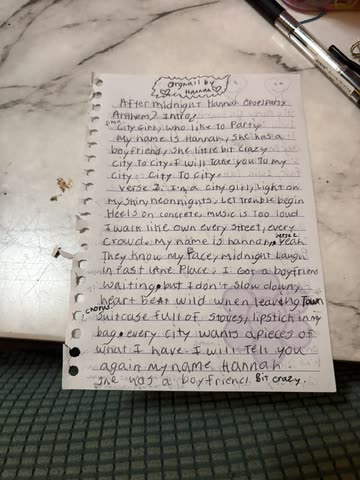 Orginail by
Hannah
After midnight Hannah
Anthem? Intro?
City Girl, who like to Party
My name is Hannah, she has a
boyfriend, she little bit crazy
City to city, I will take you to my
City. City To City.
Verse I. I'm a city girl, light on
My shiny neon nights, Let trouble begin
Heels on concrete, music is too loud
I walk like own every street, every
Crowd. My name is hannah. Yeah
verse 2
They know my Face, midnight laugh
in fast lane Place, I got a boyfriend
waiting, but I don't slow down,
heart beat wild when leaving Town
Chorus.
Suitcase full of stories, lipstick in my
bag. every city wants a pieces of
what I have I will Tell you
again my name. Hannah.
She has a boyfriend Bit crazy.